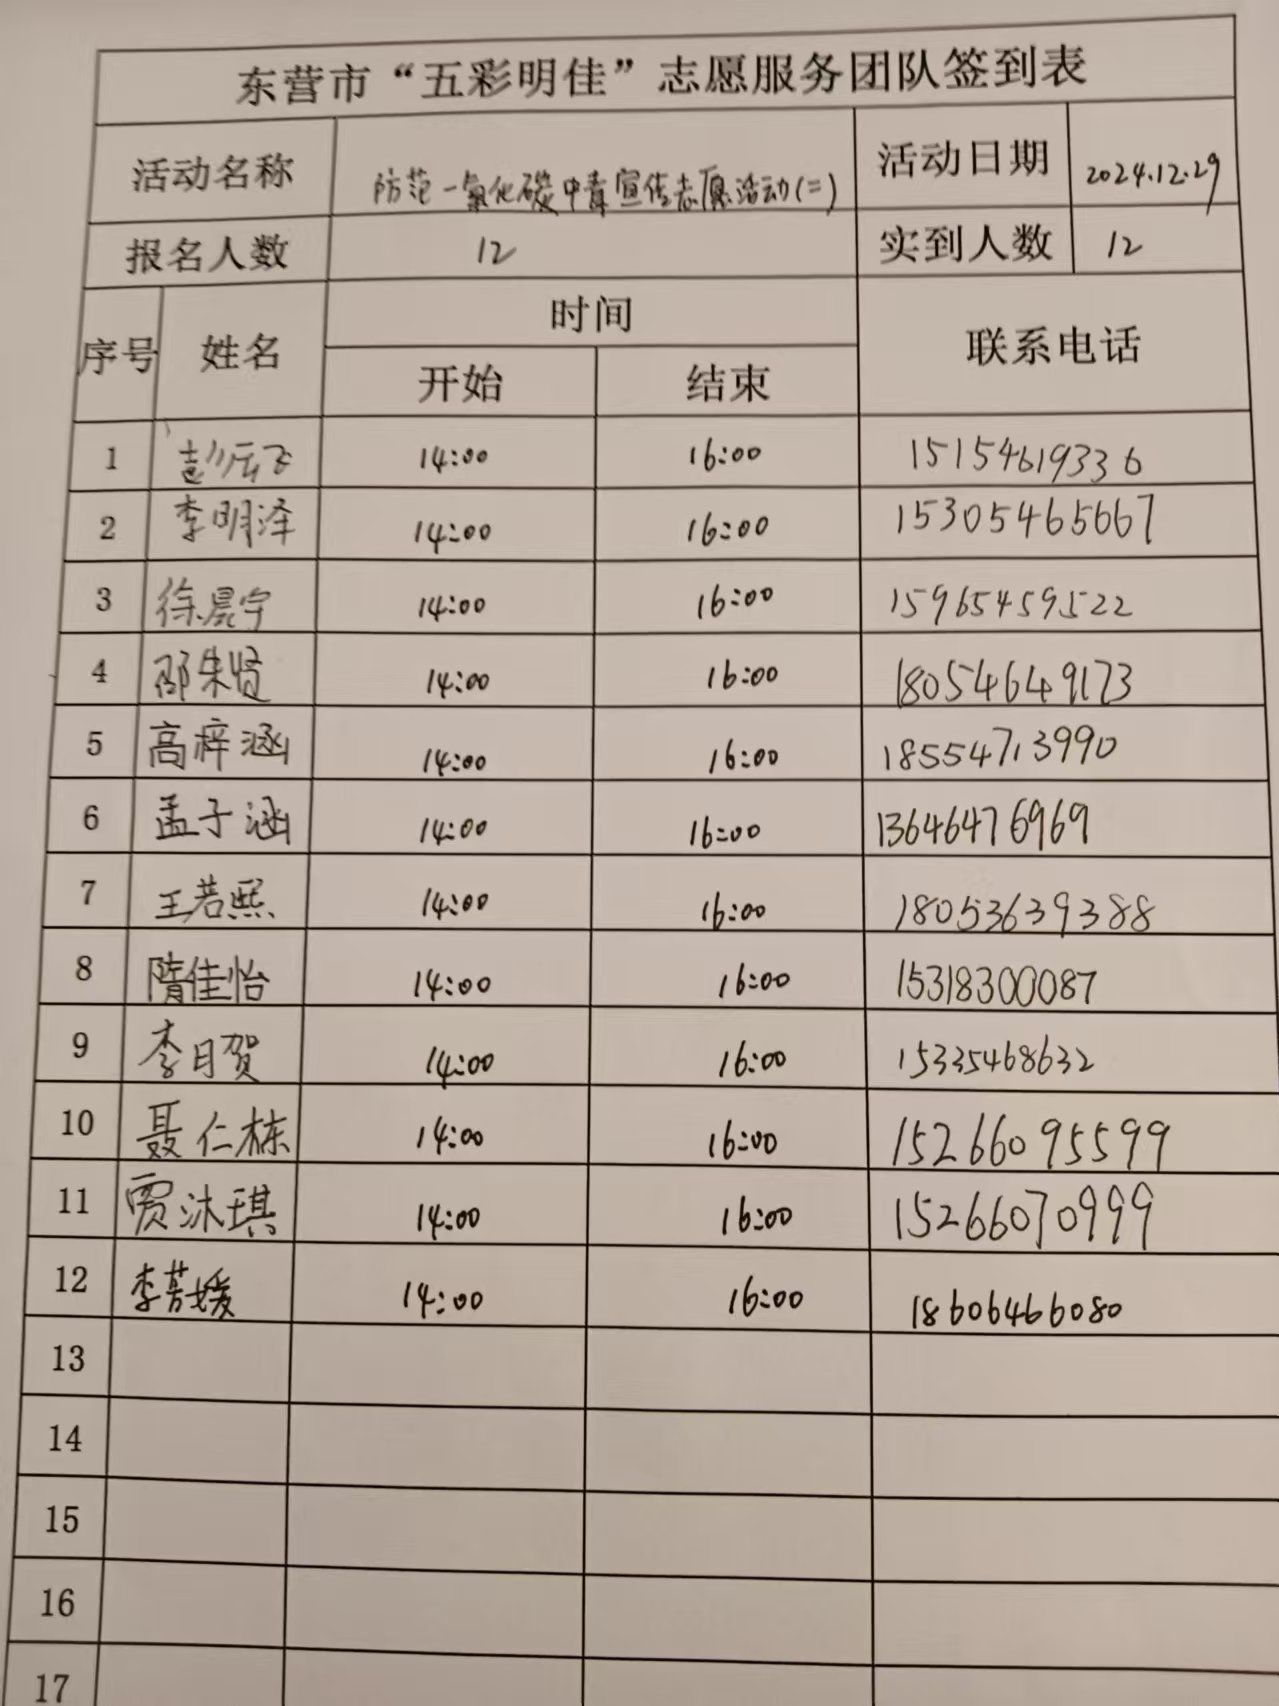 东营市“五彩明佳”志愿服务团队签到表
活动名称 防范一氧化碳中毒宣传志愿活动(二) 活动日期 2024.12.29
报名人数 12 实到人数 12
序号 姓名 时间 联系电话
开始 结束
1 彭 飞 14:00 16:00 15154619336
2 李明泽 14:00 16:00 15305465667
3 徐晨宇 14:00 16:00 15965459522
4 邵朱贤 14:00 16:00 18054649173
5 高梓涵 14:00 16:00 18554713990
6 孟子涵 14:00 16:00 13646476969
7 王若熙 14:00 16:00 18053639388
8 隋佳怡 14:00 16:00 15318300087
9 李日贺 14:00 16:00 15335468632
10 聂仁栋 14:00 16:00 15266095599
11 贾沐琪 14:00 16:00 15266070999
12 李 媛 14:00 16:00 18606466080
13
14
15
16
17